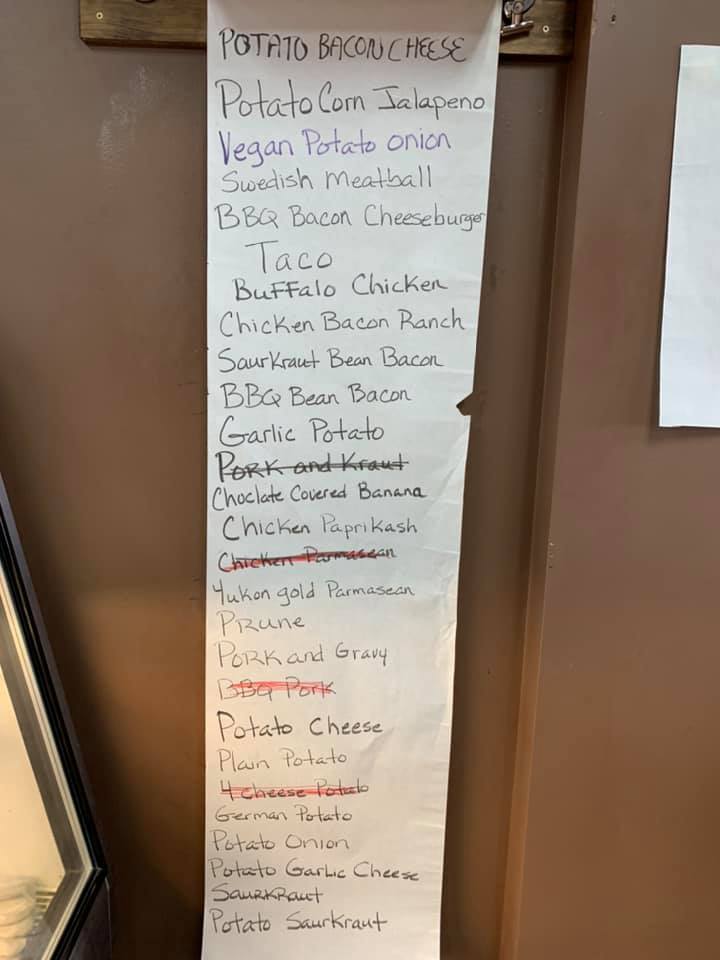 POTATO BACON CHEESE
Potato Corn Jalapeno
Vegan Potato onion
Swedish Meatball
BBQ Bacon Cheeseburger
Taco
Buffalo Chicken
Chicken Bacon Ranch
Saurkraut Bean Bacon
BBQ Bean Bacon
Garlic Potato
Pork and Kraut
Choclate Covered Banana
Chicken Paprikash
Chicken Parmasean
Yukon gold Parmasean
Prune
Pork and Gravy
BBQ Pork
Potato Cheese
Plain Potato
4 cheese Potato
German Potato
Potato Onion
Potato Garlic Cheese
Saurkraut
Potato Saurkraut